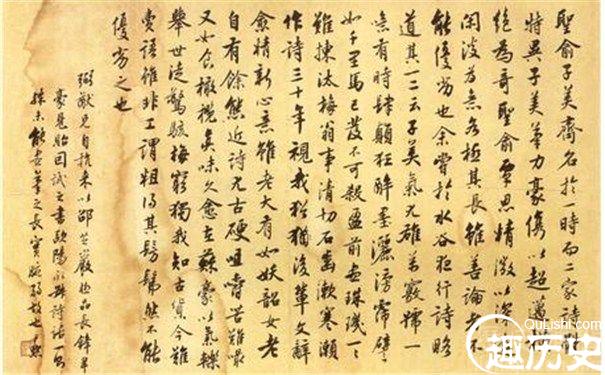 聖俞子美齊名於一時而二家詩
特異子美筆力豪儁以超邁
絕為奇聖俞覃思精微以深
閒淡為意各極其長雖善論者
能優劣也余嘗於水谷夜行詩略
道其一二云子美氣尤雄萬竅號一
噫有時肆顛狂醉墨灑滂霈譬
如千里馬已發不可殺盈前盡珠璣一一
難揀汰梅翁事清切石齒漱寒瀨
作詩三十年視我猶後輩文辭
愈精新心意雖老大有如妖韶女老
自有餘態近詩尤古硬咀嚼苦難嘬
又如食橄欖真味久愈在蘇豪以氣轢
舉世徒驚駭梅窮獨我知古貨今難
賣語雖非工謂粗得其髣髴然不能
優劣之也
猷兄自來以邵芝巖極品長鋒羊
豪見貽因試之書歐陽永叔詩話一
殊未能盡筆之長實腕弱故也
QuLishi.com
趣历史